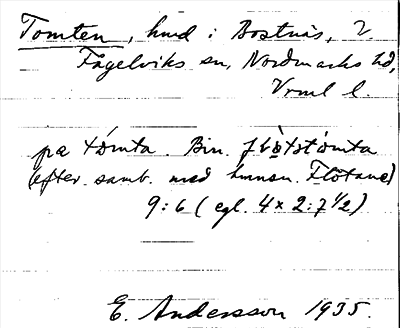 Tomten, hmd i Bostnäs, 2
Fågelviks sn, Nordmarks hd,
Vrml l.
pa tómta. Bin. flò̀tstómta
(efter samb. med hmnsn. Flötane)
9:6 (egl. 4x2:7½)
E. Andersson 1935.